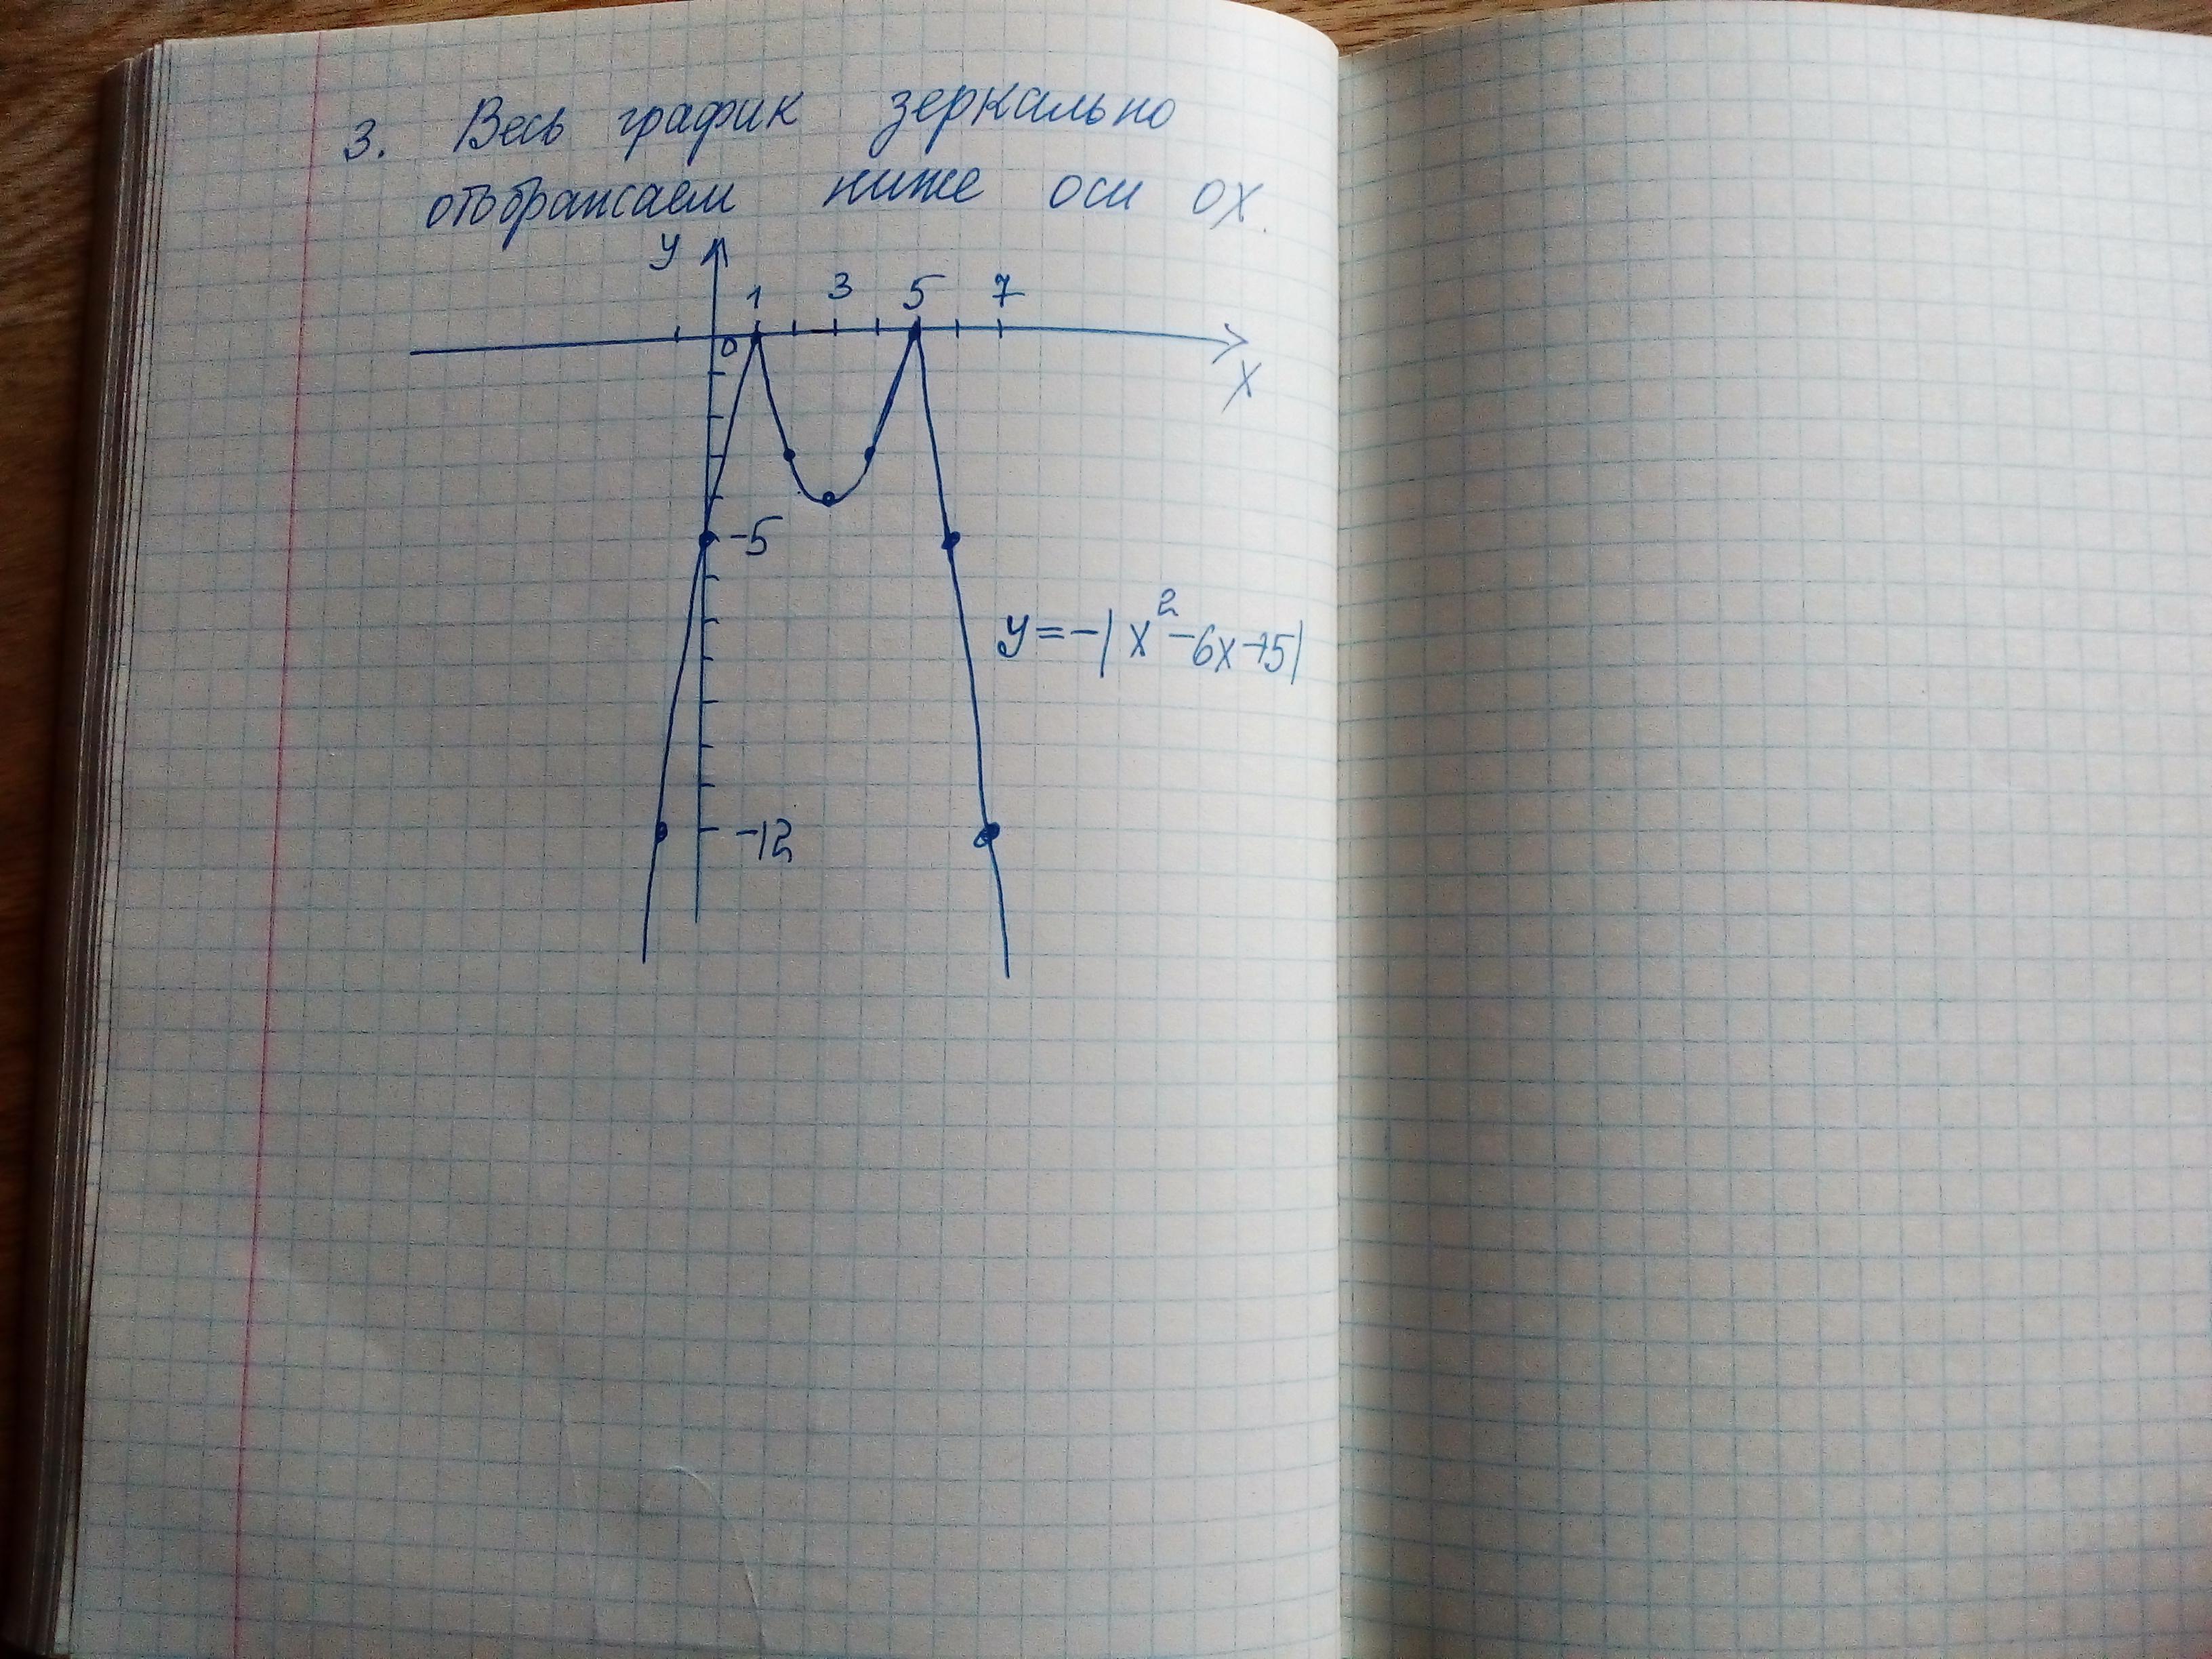 3. Весь график зеркально
отображаем ниже оси ох.
y
1 3 5 7
0
x
-5
y=-|x²-6x+5|
-12